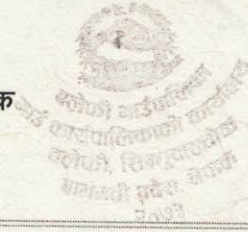 क
बलेफी गाउँपालिका
गाउँ कार्यपालिकाको कार्यालय
बलेफी, सिन्धुपाल्चोक
बागमती प्रदेश, नेपाल